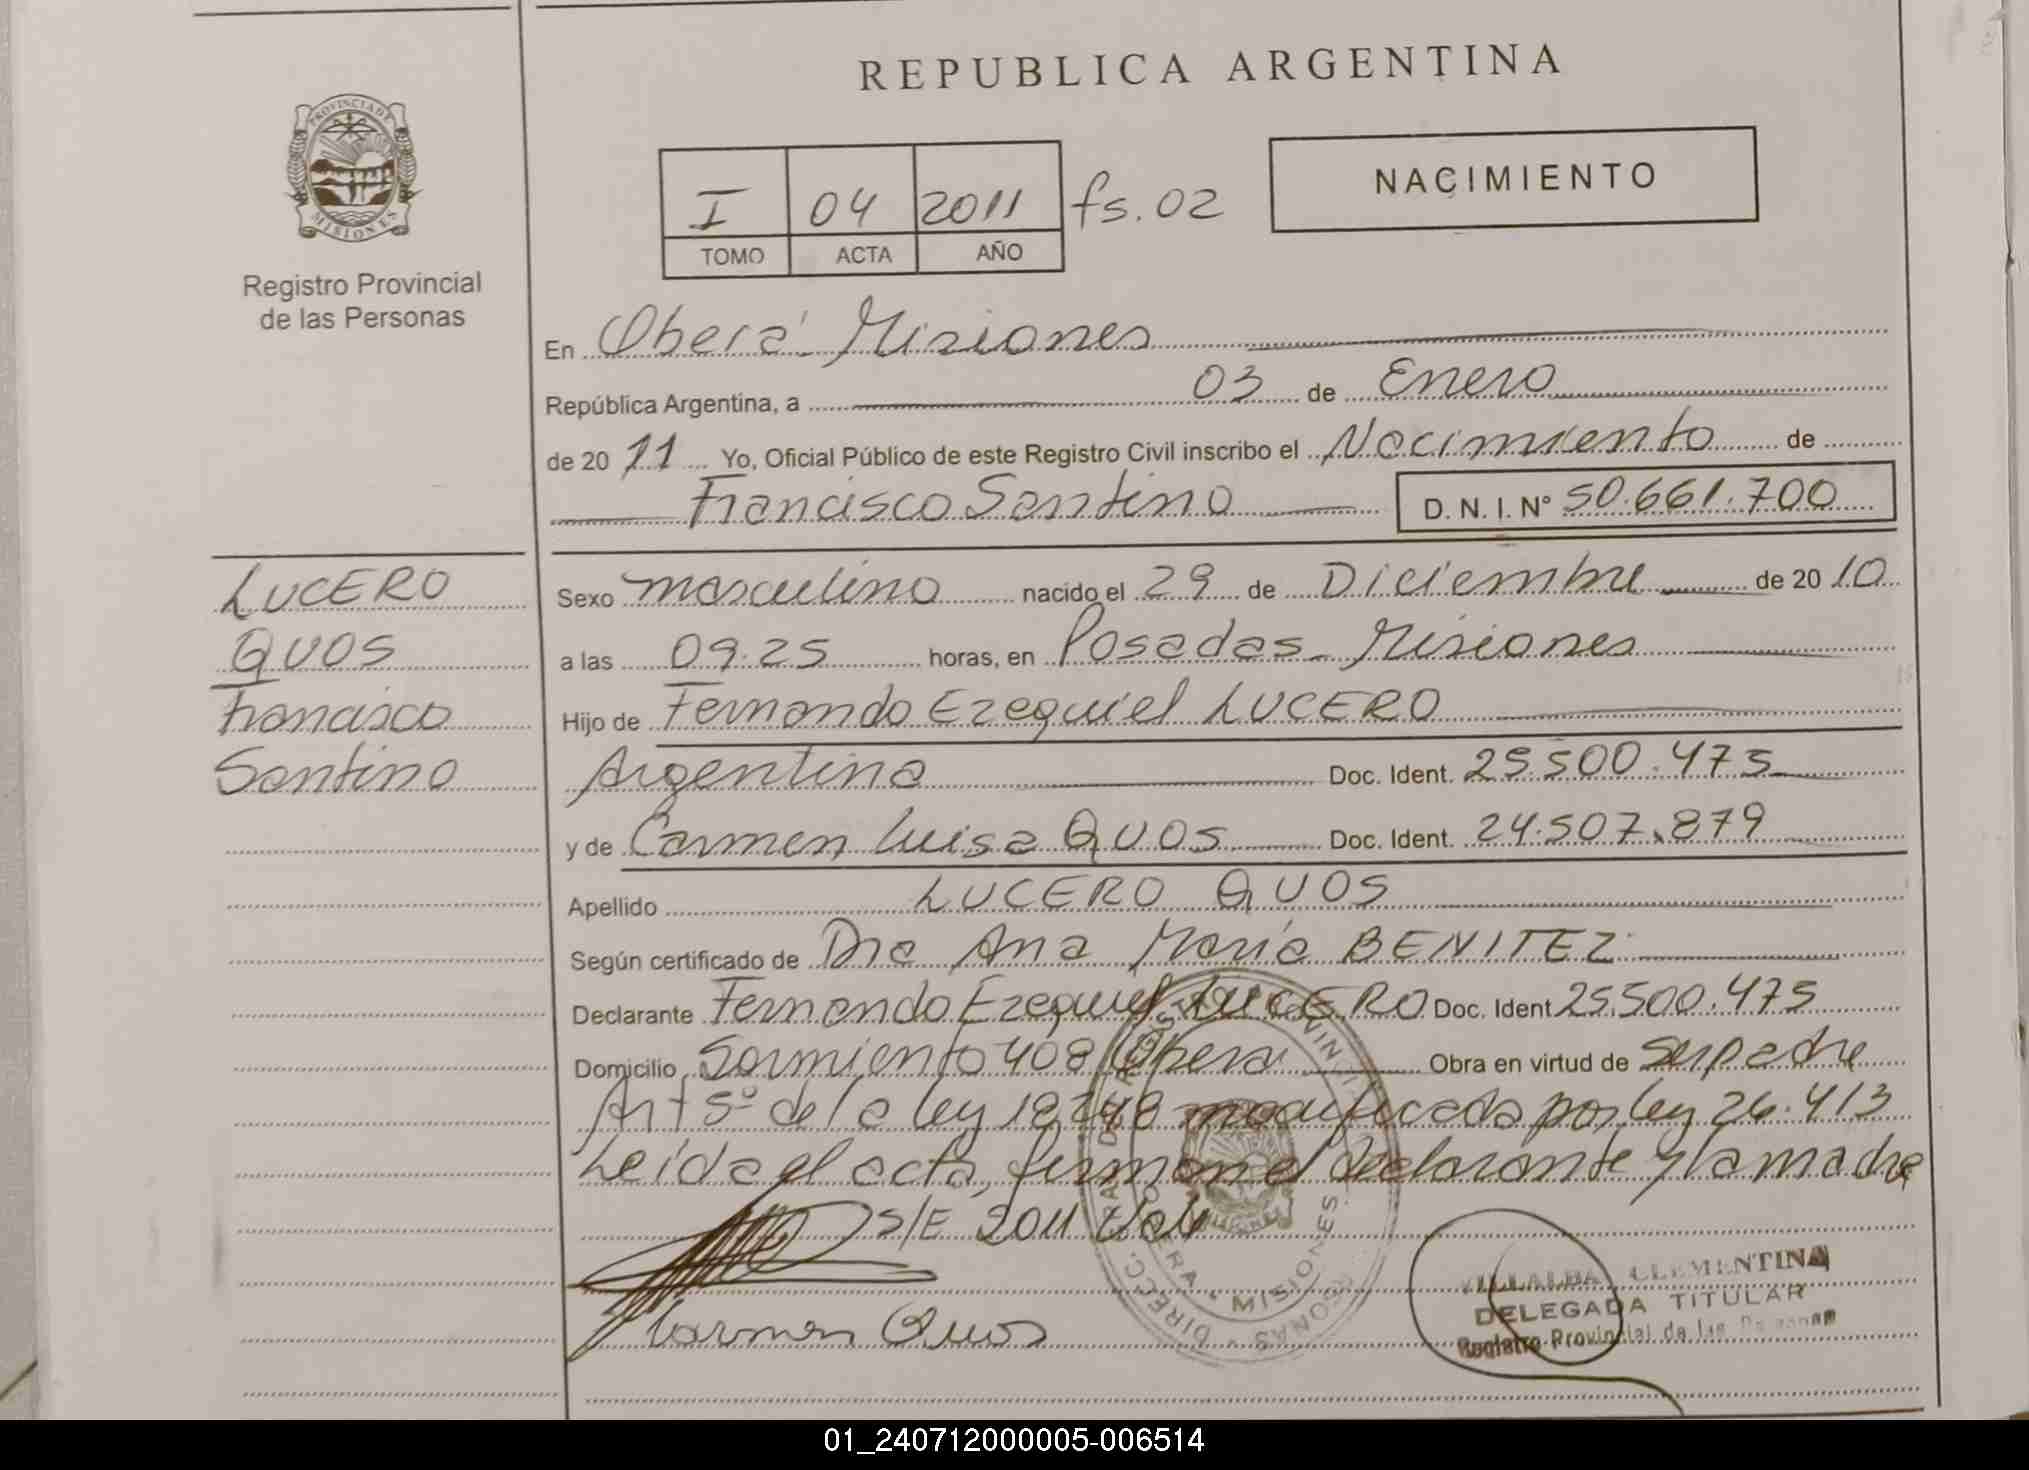 REPUBLICA ARGENTINA
PROVINCIA DE
MISIONES
Registro Provincial
de las Personas
I 04 2011 fs. 02
TOMO ACTA AÑO
NACIMIENTO
En Oberá - Misiones
República Argentina, a 03 de Enero
de 20 11 Yo, Oficial Público de este Registro Civil inscribo el Nacimiento de
Francisco Santino D. N. I. N° 50.661.700
LUCERO
QUOS
Francisco
Santino
Sexo masculino nacido el 29 de Diciembre de 20 10
a las 09.25 horas, en Posadas - Misiones
Hijo de Fernando Ezequiel LUCERO
Argentina Doc. Ident. 25.500.475
y de Carmen Luisa QUOS Doc. Ident. 24.507.879
Apellido LUCERO QUOS
Según certificado de Dra Ana María BENITEZ
Declarante Fernando Ezequiel LUCERO Doc. Ident 25.500.475
Domicilio Sarmiento 408 Obera Obra en virtud de ser padre
Art 5º de la ley 18248 modificada por ley 26.413
Leída el acta, firman el declarante y la madre
S/E 2011 Vale
Carmen Quos
VILLALBA CLEMENTINA
DELEGADA TITULAR
Registro Provincial de las Personas
MISIONES
01_240712000005-006514